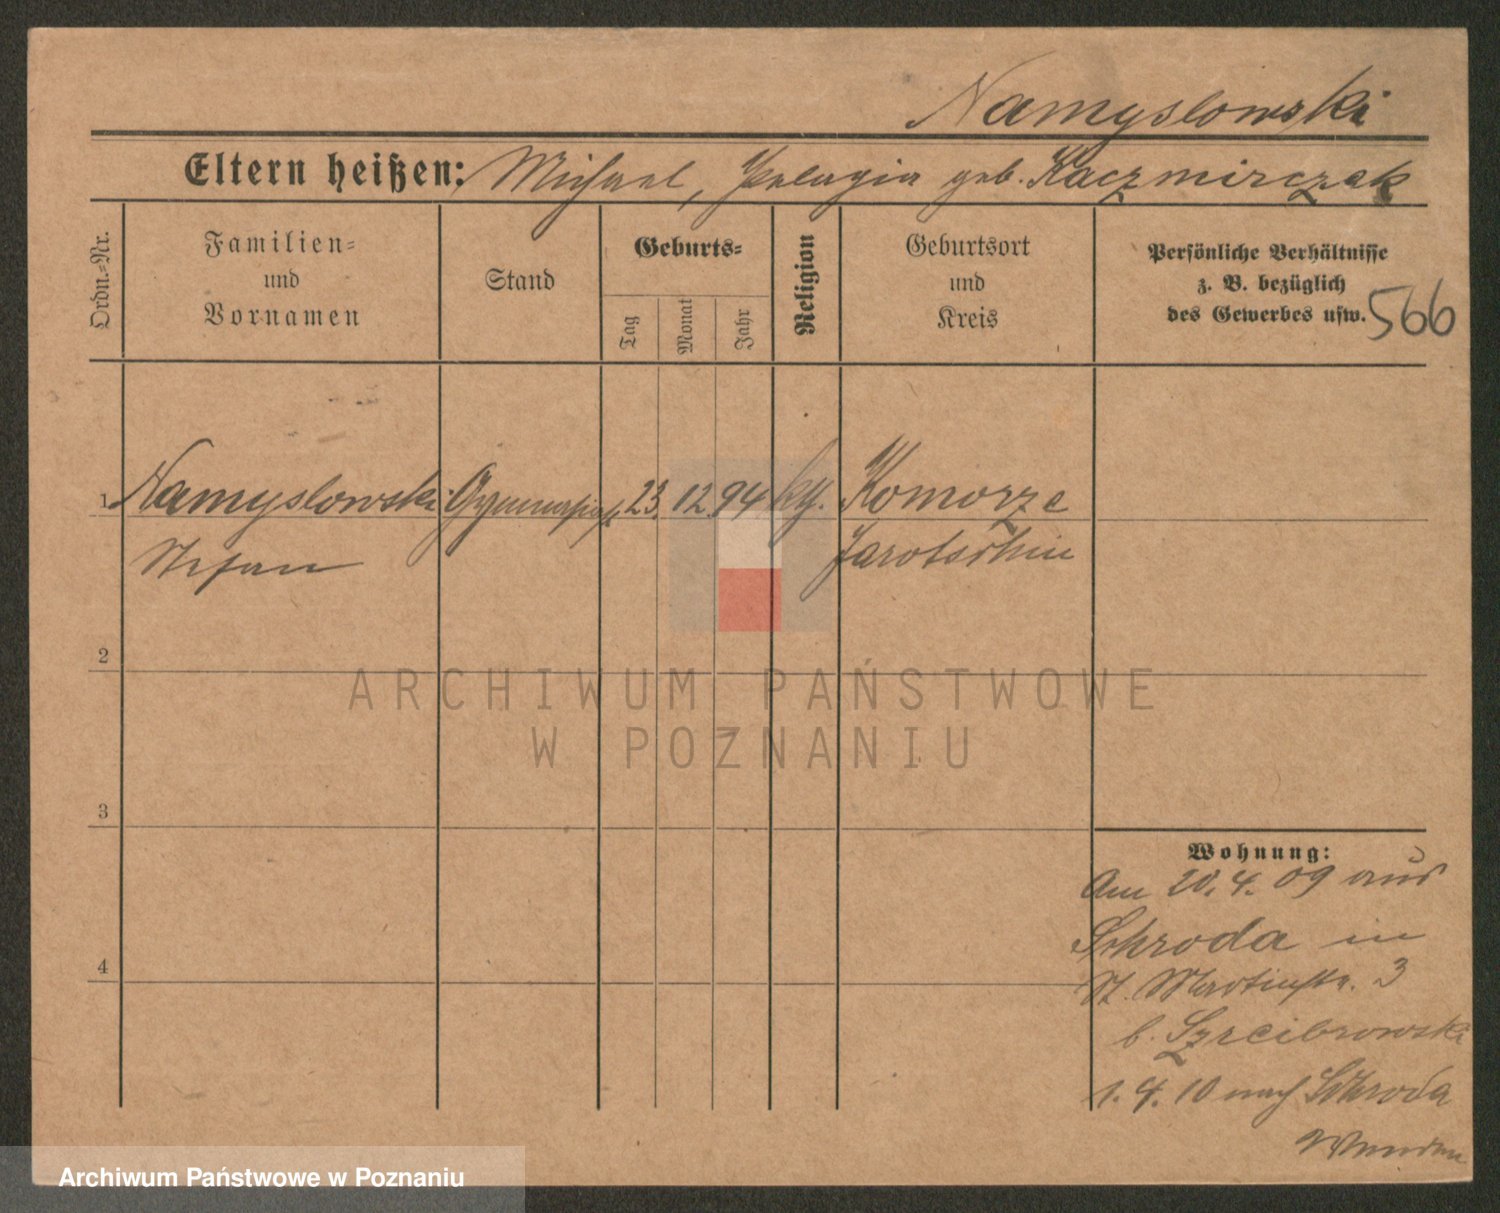 Namyslowski
Eltern heißen: Michael, Pelagia geb. Kaczmirczak
Ordn.-Nr.
Familien-
und
Vornamen
Stand
Geburts-
Tag
Monat
Jahr
Religion
Geburtsort
und
Kreis
Persönliche Verhältnisse
z. B. bezüglich
des Gewerbes usw. 566
1 Namyslowski Gymnasiast 23. 12. 94 kth. Komorze
Stefan Jarotschin
2
ARCHIWUM PAŃSTWOWE
W POZNANIU
3
Wohnung:
Am 20. 4. 09 aus
4
Schroda in
St. Martinstr. 3
b.
1. 4. 10 nach Schroda
Wenden
Archiwum Państwowe w Poznaniu